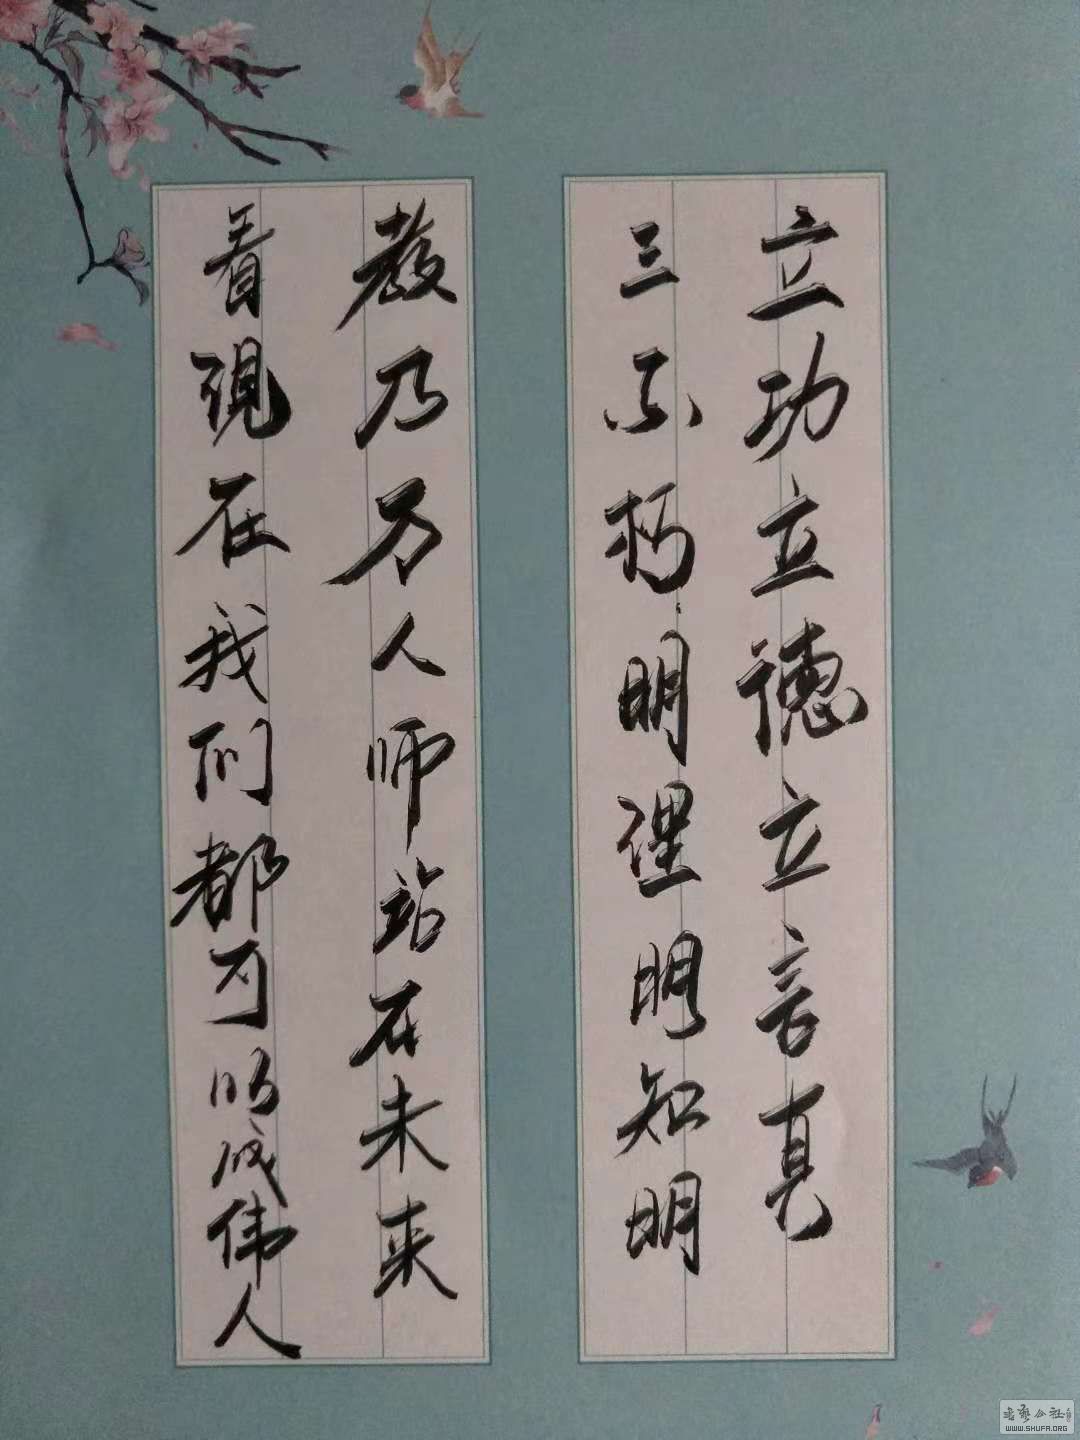 立功立德立言真
三不朽明理明知明
教乃万人师站在未来
看现在我们都可以成伟人
WWW.SHUFA.ORG